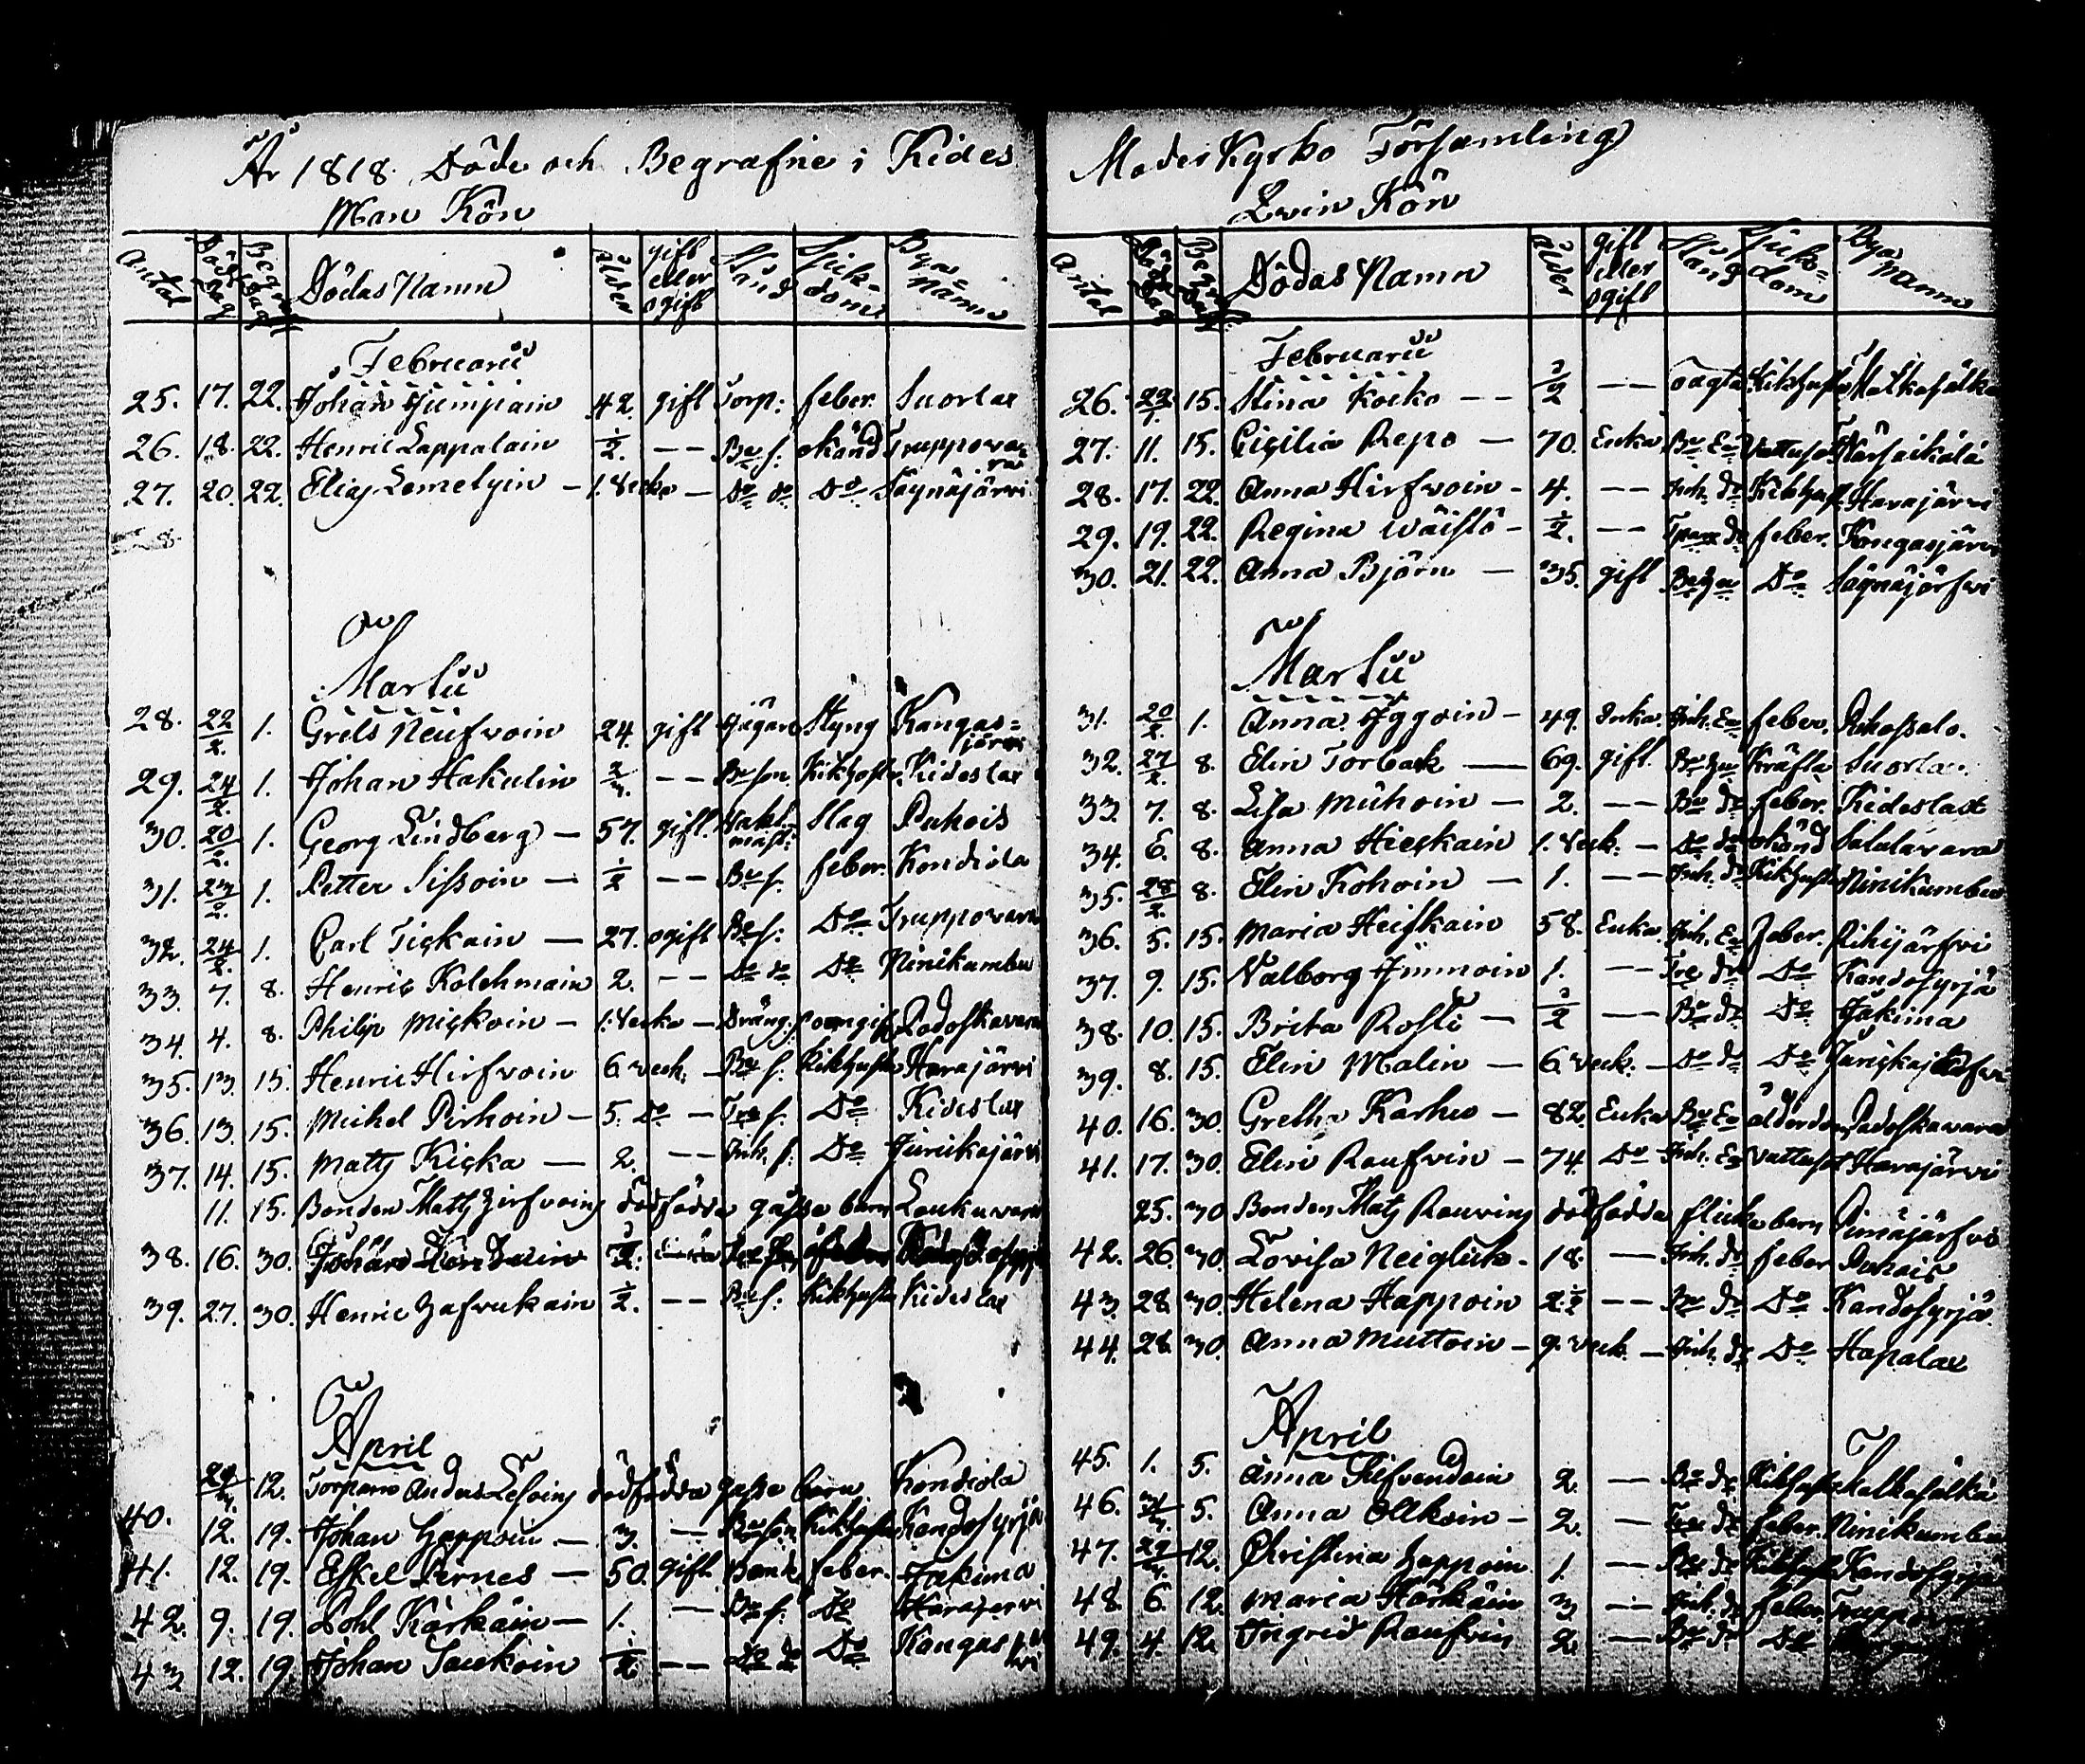 År 1818. Döde och Begrafne i Kides
Man Kön
Antal Död Dag Begr: Dag Dödas Namn Ålder gift eller ogift Stånd Sjukdom Bya Namn
Februarii
25. 17. 22. Johan Hjumpain 42. gift Torp: feber. Suorlax
26. 18. 22. Henric Lappalain 1/2. —— Be s. okänd Truppovara
27. 20. 22. Elias Lemelyin — 1. Vecka — Do do Do Säynäjärvi
Martii
28. 22/2. 1. Grels Neufvoin 24. gift Hjägare Styng Kangasjärvi
29. 24/2. 1. Johan Hakulin 2/3. —— Be son Kikhosta Kideslax
30. 20/2. 1. Georg Lindberg — 57. gift. Vaktmäst: Slag Puhois
31. 23/2. 1. Petter Sissoin — 1/2 —— Be s. feber. Kondiola
32. 24/2. 1. Carl Tiskain — 27. ogift Be s: Do Truppovara
33. 7. 8. Henric Kolehmain 2. —— Do do Do Ninikumbu
34. 4. 8. Philip Miskoin — 1. Vecka — Dräng: Potatoskavara
35. 13. 15. Henric Hirfvoin 6 veck: — Be s. Kikhosta Havajärvi
36. 13. 15. Michel Pirhoin — 5. Do — Tor s. Do Kideslax
37. 14. 15. Matts Kiska — 2. —— Inh. s: Do Juurikajärvi
11. 15. Bonden Matts Hirfvoins dödfödda gosse barn Loukuvara
38. 16. 30. Johan
39. 27. 30. Henric Hafvukain 1/2. —— Be s: Kikhosta Kideslax
April
29/3. 12. Torparen Anders Lesoins dödfödda gosse barn. Kondiola
40. 12. 19. Johan Happoin — 3. — Be son Kikhosta Kandosyrjä
41. 12. 19. Eskel Pirnes — 50. gift. Bond. feber. Jukima
42. 9. 19. Pohl Karkain — 1. — Be s: Do Havajervi
43. 12. 19. Johan Taukoin 1/2 —— Do do Do Kangasjervi
Moder Kyrko Församling
Qvin Kön
Antal Döds dag Begr: dag Dödas Namn Ålder gift eller ogift Stånd Sjukdom Bya namn
Februarii
26. 29/1. 15. Stina Kocko —— 3/2 —— Kikhosta Matkaselkä
27. 11. 15. Cicilia Repo — 70. Enka Be En Vattusot
28. 17. 22. Anna Hirfvoin — 4. —— Inh. dr Kikhost. Havajärvi
29. 19. 22. Regina Wäistö — 1/2. —— dr feber. Kongasjärvi
30. 21. 22. Anna Björn — 35. gift Do Säynäjärfvi
Martii
31. 20/2. 1. Anna Iggoin — 49. Enka. Inh. En feber. Rihossalo.
32. 27/2. 8. Elin Torback — 69. gift. Kräfta Suorlax.
33. 7. 8. Lisa Muhoin — 2. —— Be dr feber. Kideslax
34. 6. 8. Anna Hieskain 1. veck: — Do do okänd Salolavara
35. 28/2. 8. Elin Kohoin — 1. —— Inh. dr Kikhosta Ninikumbu
36. 5. 15. Maria Heiskain 58. Enka. Inh. En feber. Rihijärfvi
37. 9. 15. Valborg Immoin 1. —— dr Do Kandosyrjä
38. 10. 15. Brita Rosti — 3/2 —— Be dr Do Jukima
39. 8. 15. Elin Malin — 6 veck: — Do do Do
40. 16. 30. Gretha Karhu — 82. Enka Be En ålderdom Potoskavara
41. 17. 30. Elin Raufvin — 74. Do Inh. En Vattusot Havajärvi
25. 30. Bonden Mats Rauvins dödfödda flicko barn Pimäjärfvi
42. 26. 30. Lovisa Neiglick — 18. — Inh. dr feber Puhois
43. 28. 30. Helena Happoin 2 1/2 —— Be dr Do Kandosyrjä
44. 28. 30. Anna Muttoin — 9. veck. — Inh. dr Do Hapalax
April
45. 1. 5. Anna Hifvendoin 2. — Be dr Kikhosta Matkaselkä
46. 31/3. 5. Anna Ollkoin — 2. — dr feber. Ninikumbu
47. 29/3. 12. Christina Happoin 1. — Be dr Kikhosta Kandosyrjä
48. 6. 12. Maria Härkäin 3. — Inh. dr feber
49. 4. 12. Ingrid Raufvin 2. — Be dr Do